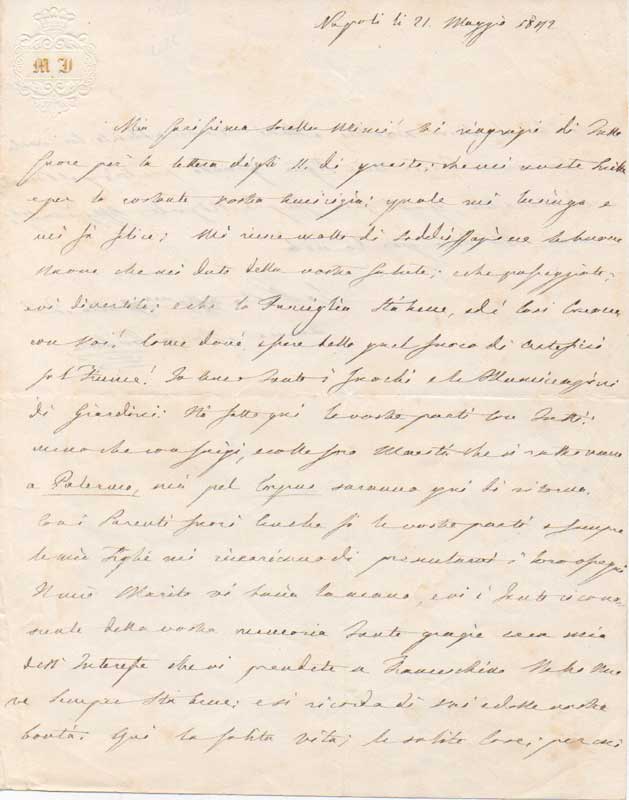 Napoli li 21. Maggio 1842
M I
Mia Carissima Sorella Mimì! Vi ringrazio di tutto
Cuore per la lettera degli 11. di questo; che mi avete
e per la costante vostra amicizia; quale mi lusinga e
mi fà felice; Mi sono molto di soddisfazione le buone
Nuove che mi date della vostra Salute; e che passeggiate;
e vi divertite; e che la Famiglia stà bene, ed è così
con voi! Come dové essere bello quel fuoco di artificj
sul Fiume! Io amo tanto i fuochi e le Illuminazioni
di Giardini: Hò fatto qui le vostre parti con tutti;
meno che con Luigi, e colle loro Maestà che si
a Palermo, mà pel Corpus saranno qui di ritorno.
Coi Parenti fuori anche fò le vostre parti e sempre
le mie Figlie mi incaricano di presentarvi i loro ossequj
Il mio Marito vi bacia la mano, e vi è tanto ricono-
scente della vostra memoria tante grazie cara mia
dell' Interesse che vi prendete a Franceschino
sempre stà bene; e si ricorda di voi e delle vostre
bontà. Quì la solita vita; le solite cose; per mi